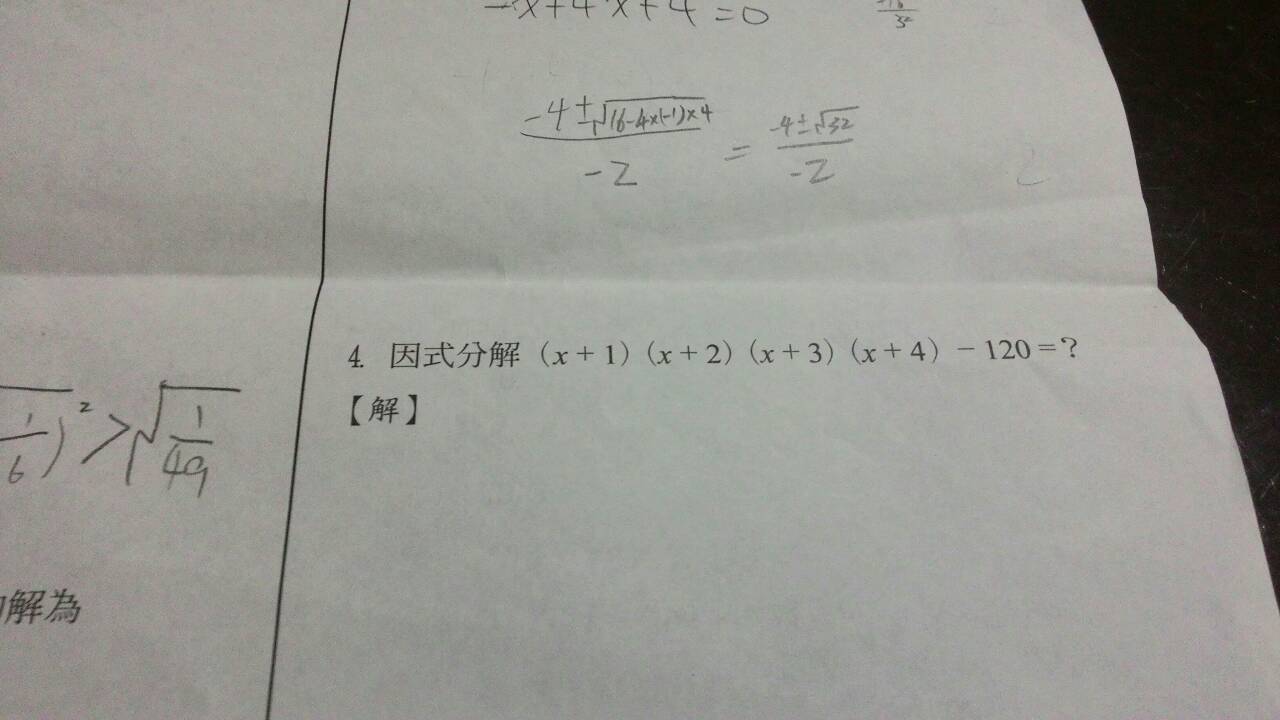 -x+4x+4=0
-4±√16-4×(-1)×4
-2
=
-4±√32
-2
4. 因式分解 (x+1)(x+2)(x+3)(x+4)-120=?
【解】
1
6
)² > √
1
49
解為